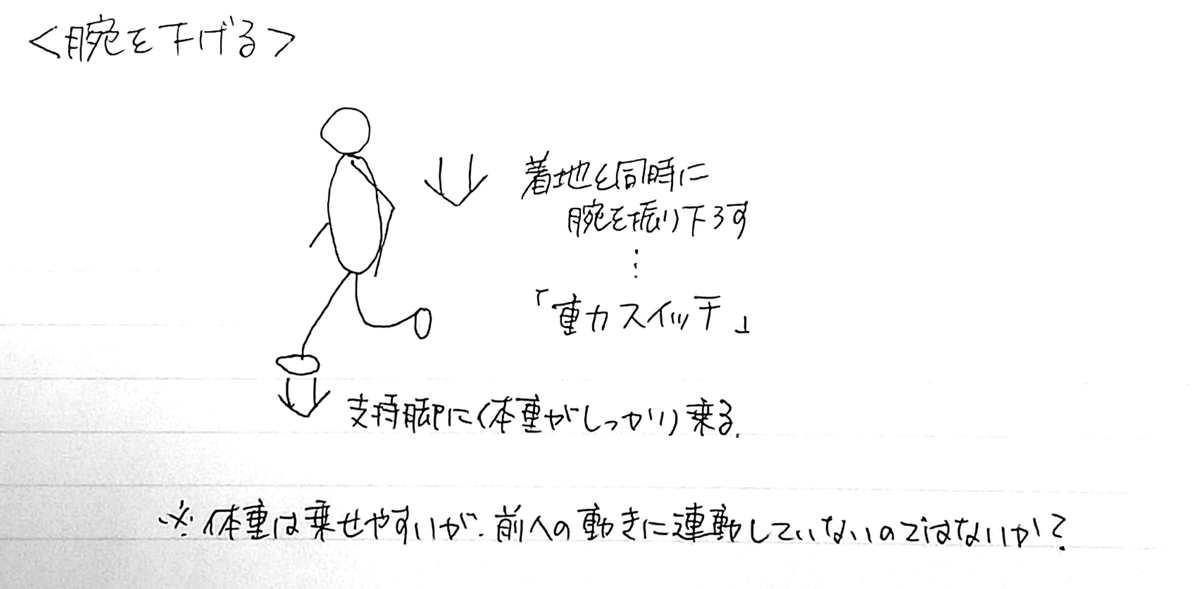 ＜腕を下げる＞
着地と同時に
腕を振り下ろす
⋮
「重力スイッチ」
支持脚に体重がしっかり乗る.
※体重は乗せやすいが、前への動きに連動していないのではないか？